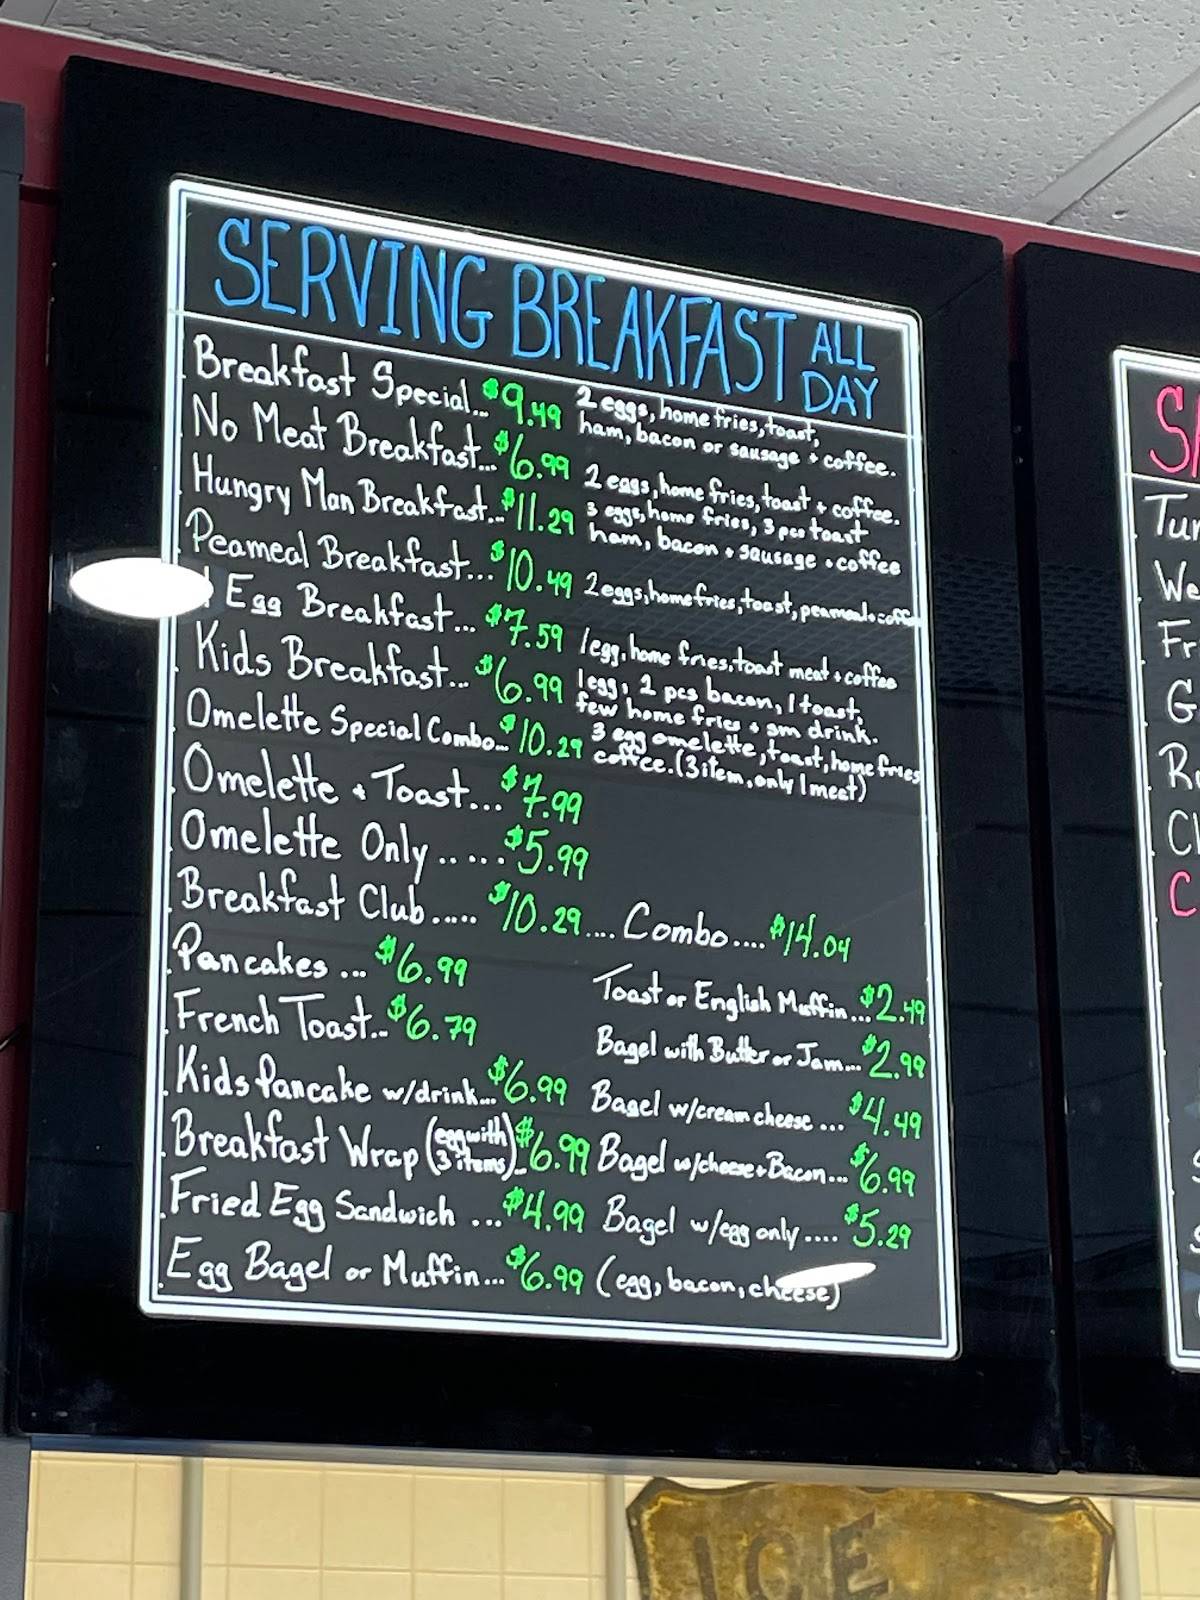 SERVING BREAKFAST ALL DAY
Breakfast Special... $9.49 2 eggs, home fries, toast,
ham, bacon or sausage + coffee.
No Meat Breakfast... $6.99 2 eggs, home fries, toast + coffee.
Hungry Man Breakfast... $11.29 3 eggs, home fries, 3 pcs toast
ham, bacon + sausage + coffee
Peameal Breakfast... $10.49 2 eggs, home fries, toast, peameal + coffee
1 Egg Breakfast... $7.59 1 egg, home fries, toast meat + coffee
Kids Breakfast... $6.99 1 egg, 2 pcs bacon, 1 toast,
few home fries + sm drink.
Omelette Special Combo... $10.29 3 egg omelette, toast, home fries
coffee. (3 item, only 1 meat)
Omelette + Toast... $7.99
Omelette Only..... $5.99
Breakfast Club..... $10.29.... Combo.... $14.04
Pancakes ... $6.99
Toast or English Muffin... $2.49
French Toast... $6.79
Bagel with Butter or Jam... $2.99
Kids Pancake w/drink... $6.99 Bagel w/cream cheese ... $4.49
Breakfast Wrap (egg with 3 items)... $6.99 Bagel w/cheese + Bacon... $6.99
Fried Egg Sandwich ... $4.99 Bagel w/egg only.... $5.29
Egg Bagel or Muffin... $6.99 (egg, bacon, cheese)
ICE